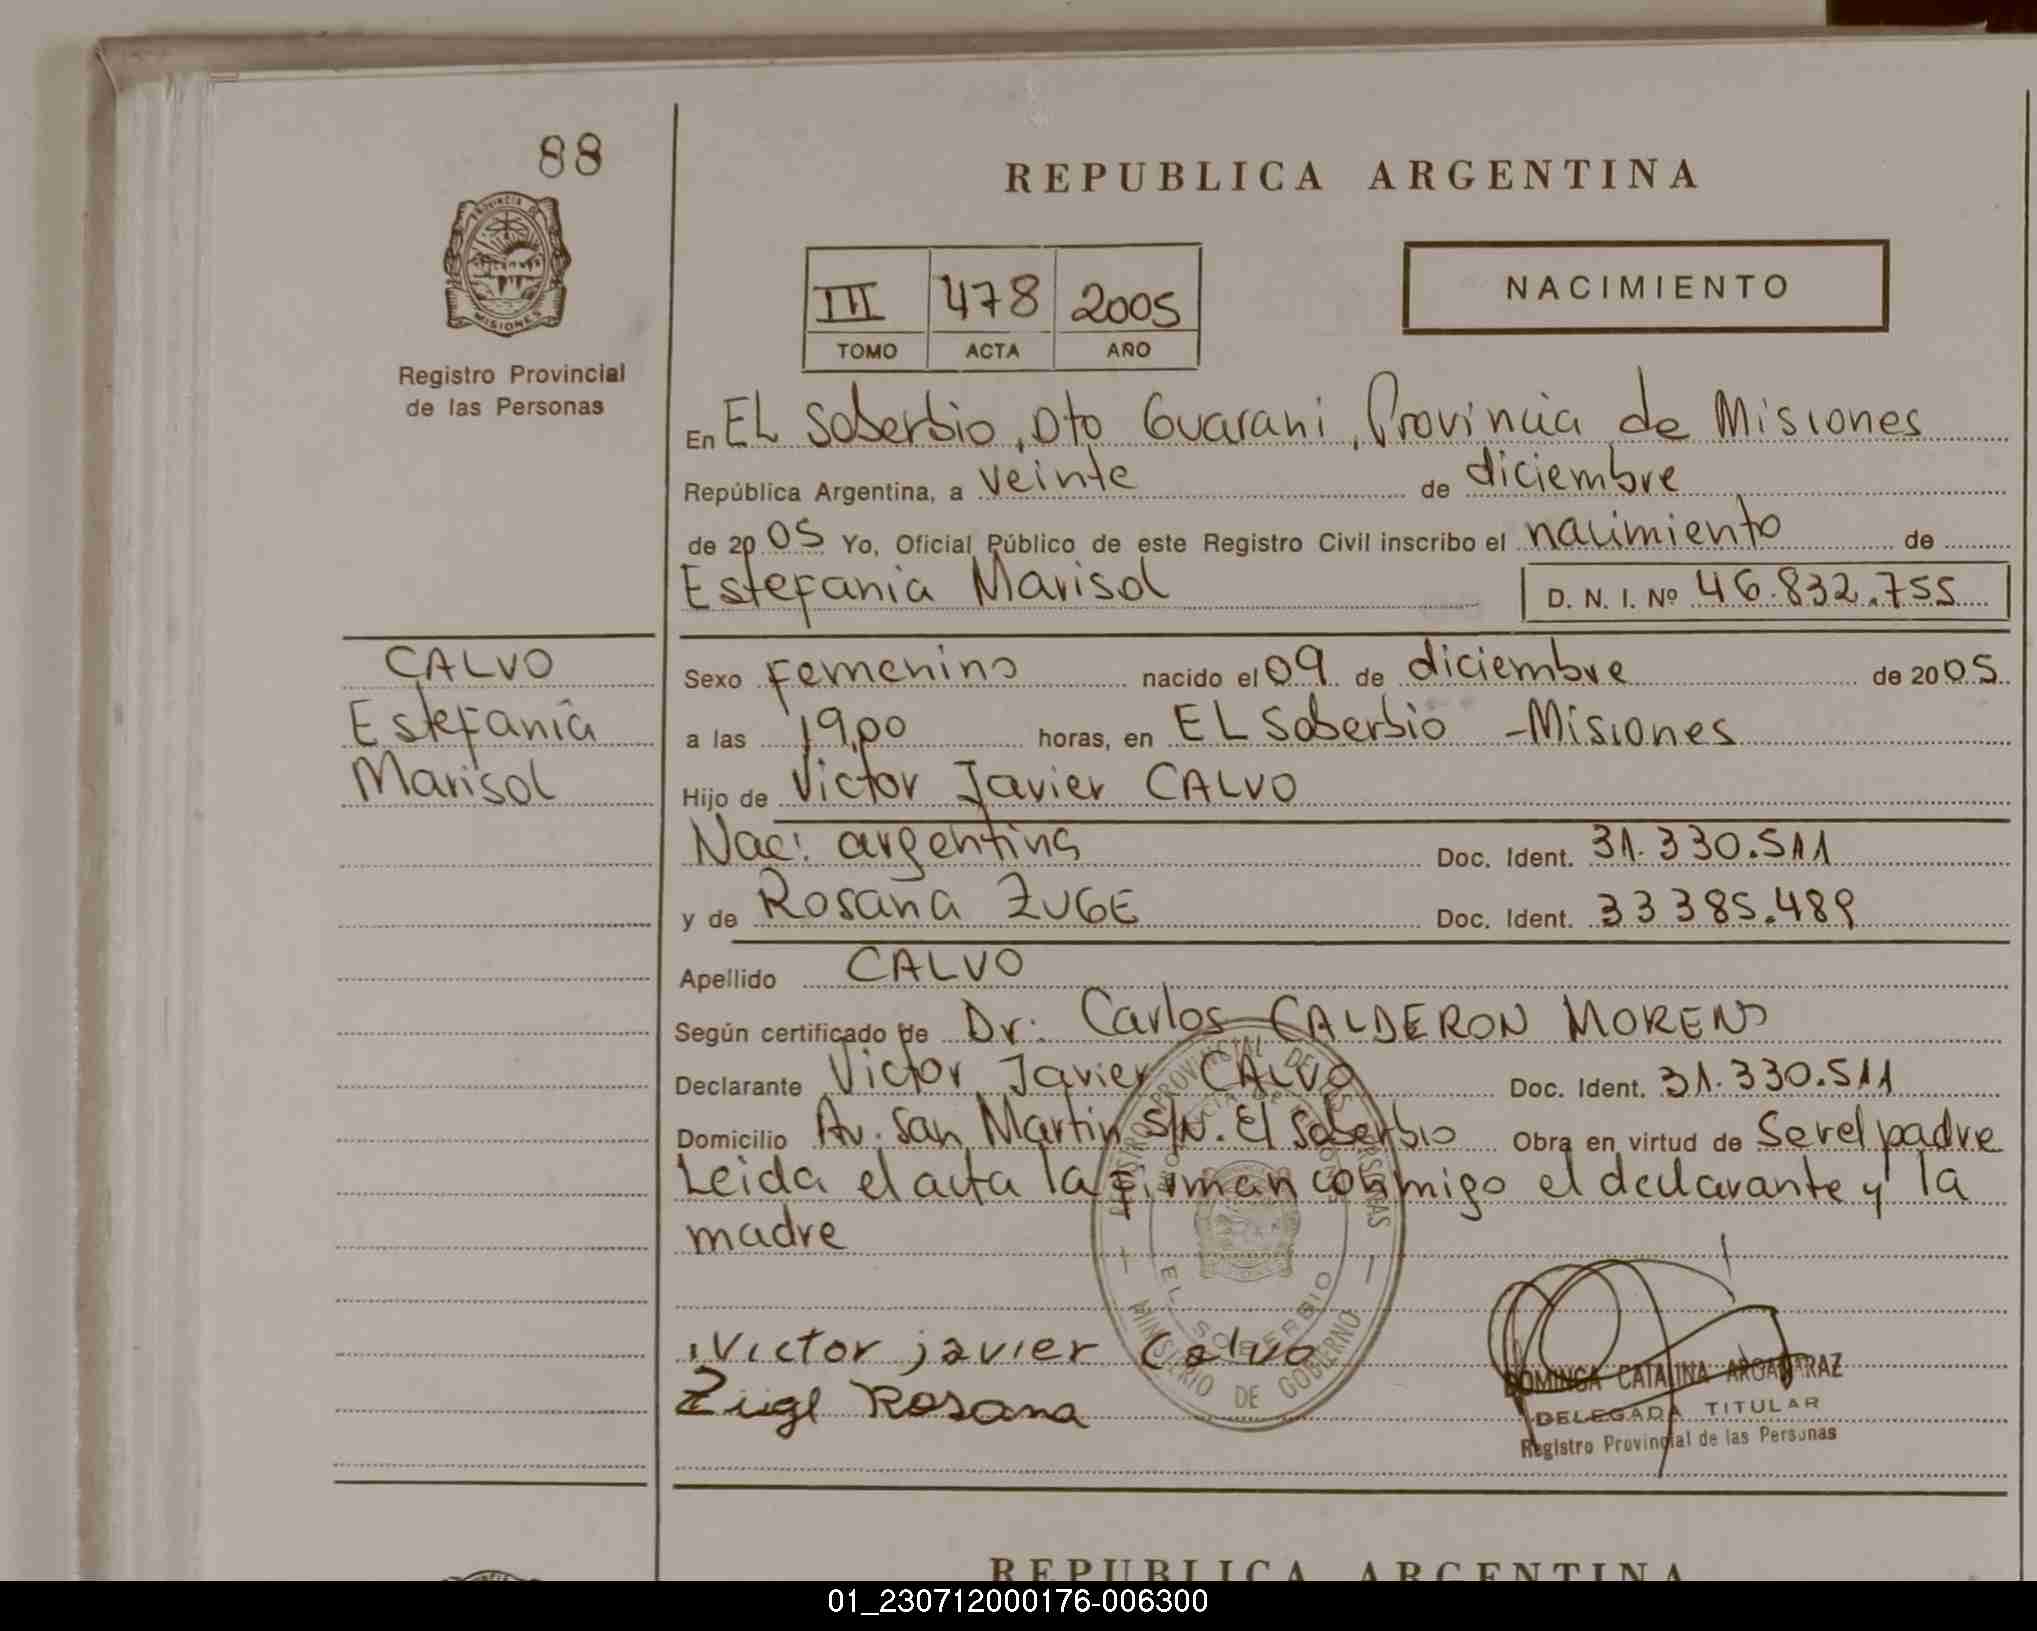 88
REPUBLICA ARGENTINA
PROVINCIA DE
MISIONES
Registro Provincial
de las Personas
NACIMIENTO
III 478 2005
TOMO ACTA AÑO
En EL Soberbio, Dto Guarani, Provincia de Misiones
República Argentina, a veinte de diciembre
de 2005 Yo, Oficial Público de este Registro Civil inscribo el nacimiento de
Estefania Marisol D. N. I. Nº 46.832.755
CALVO
Estefania
Marisol
Sexo Femenino nacido el 09 de diciembre de 2005
a las 19,00 horas, en EL Soberbio - Misiones
Hijo de Victor Javier CALVO
Nac: argentina Doc. Ident. 31.330.511
y de Rosana ZUGE Doc. Ident. 33385.489
Apellido CALVO
Según certificado de Dr: Carlos CALDERON MORENO
Declarante Victor Javier CALVO Doc. Ident. 31.330.511
Domicilio Av. San Martin S/N. El Soberbio Obra en virtud de Ser el padre
Leida el acta la firman conmigo el declarante y la
madre
REGISTRO PROVINCIAL DE LAS PERSONAS
PROVINCIA DE MISIONES
EL SOBERBIO
MINISTERIO DE GOBIERNO
Victor javier Calvo
Züge Rosana
DOMINGA CATALINA ARGAÑARAZ
DELEGADA TITULAR
Registro Provincial de las Personas
REPUBLICA ARGENTINA
01_230712000176-006300